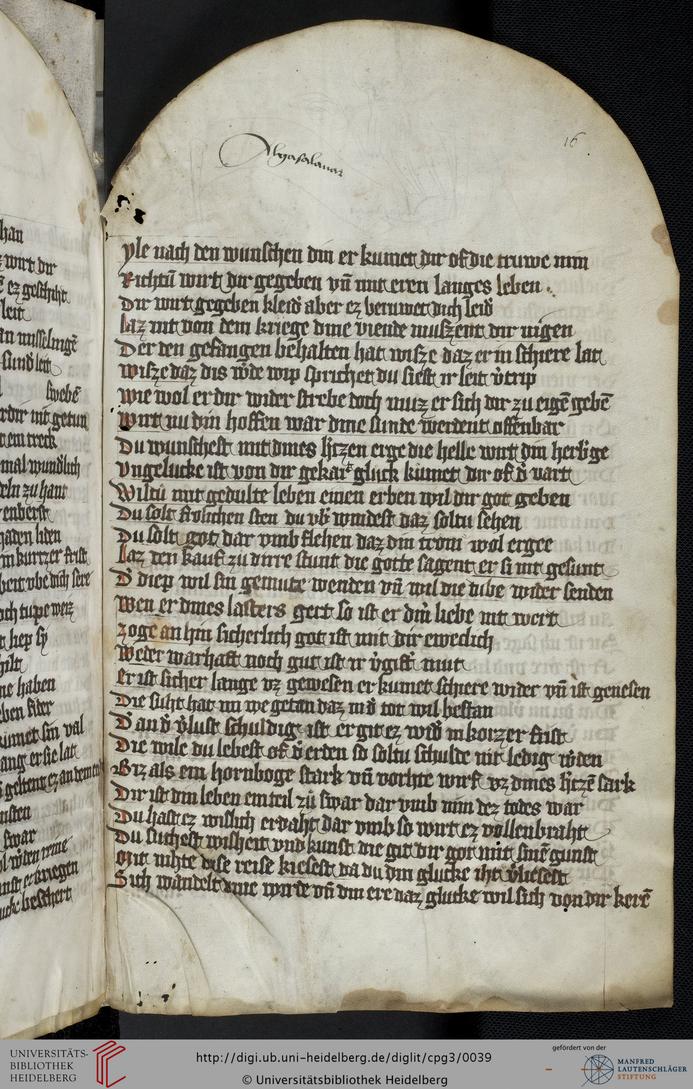 han
wirt dir
ez geschiht
leit
an misselinge
sund leit
swebe
rdir nit getun
mal wundlich
deln zu hant
haden liden
in kurzer frist
hep sy
hilt
ne haben
kumet sin val
ang er sie lat
geltent ez an dem
swar
beschert
Abgasalauar
16
yle nach den wunschen din er kumet dir of die truwe min
Richtu wirt dir gegeben vn mit eren langes leben
Dir wirt gegeben kleid aber ez beruwet dich leid
Laz nit von dem kriege dine viende muszent dir nigen
Der den gefangen behalten hat wisze daz er in schiere lat
Wisze daz dis wde wip sprichet du siest ir leit vtrip
Wie wol er dir wider strebe doch muz er sich dir zu eige gebe
Wirt nu din hoffen war dine sunde werdent offenbar
Du wunschest mit dines htzen erge die helle wirt din herbge
Vngelucke ist von dir gekart gluck kumet dir of d vart
Wiltu mit gedulte leben einen erben wil dir got geben
Du solt frolichen sten du vb windest daz soltu sehen
Du solt got dar vmb flehen daz din trom wol ergee
Laz den kauf zu dirre stunt die gotte sagent er si nit gesunt
D diep wil sin gemute wenden vn wil die dibe wider senden
Wen er dines lasters gert so ist er din liebe nit wert
Zoge an hin sicherlich got ist mit dir eweclich
Weder warhaft noch gut ist ir vgift mut
Er ist sicher lange vz gewesen er kumet schiere wider vn ist genesen
Die suht hat im we getan daz in d tot wil bestan
D an d vlust schuldig ist er git ez wid in korzer frist
Die wile du lebest of d erden so soltu schulde nit ledig wden
Biz als ein hornboge stark vn vorhte wirf vz dines htze sark
Dir ist din leben ein teil zu swar dar vmb nim dez todes war
Du hast ez wislich erdaht dar vmb so wirt ez vollenbraht
Du suchest wisheit vnd kunst die git dir got mit sine gunst
Mit nihte dise reise kiesest da du din glucke iht vliesest
Sich wandelt dine wirde vn din ere daz glucke wil sich von dir kere
UNIVERSITÄTS-
BIBLIOTHEK
HEIDELBERG
http://digi.ub.uni-heidelberg.de/diglit/cpg3/0039
© Universitätsbibliothek Heidelberg
gefördert von der
MANFRED
LAUTENSCHLÄGER
STIFTUNG